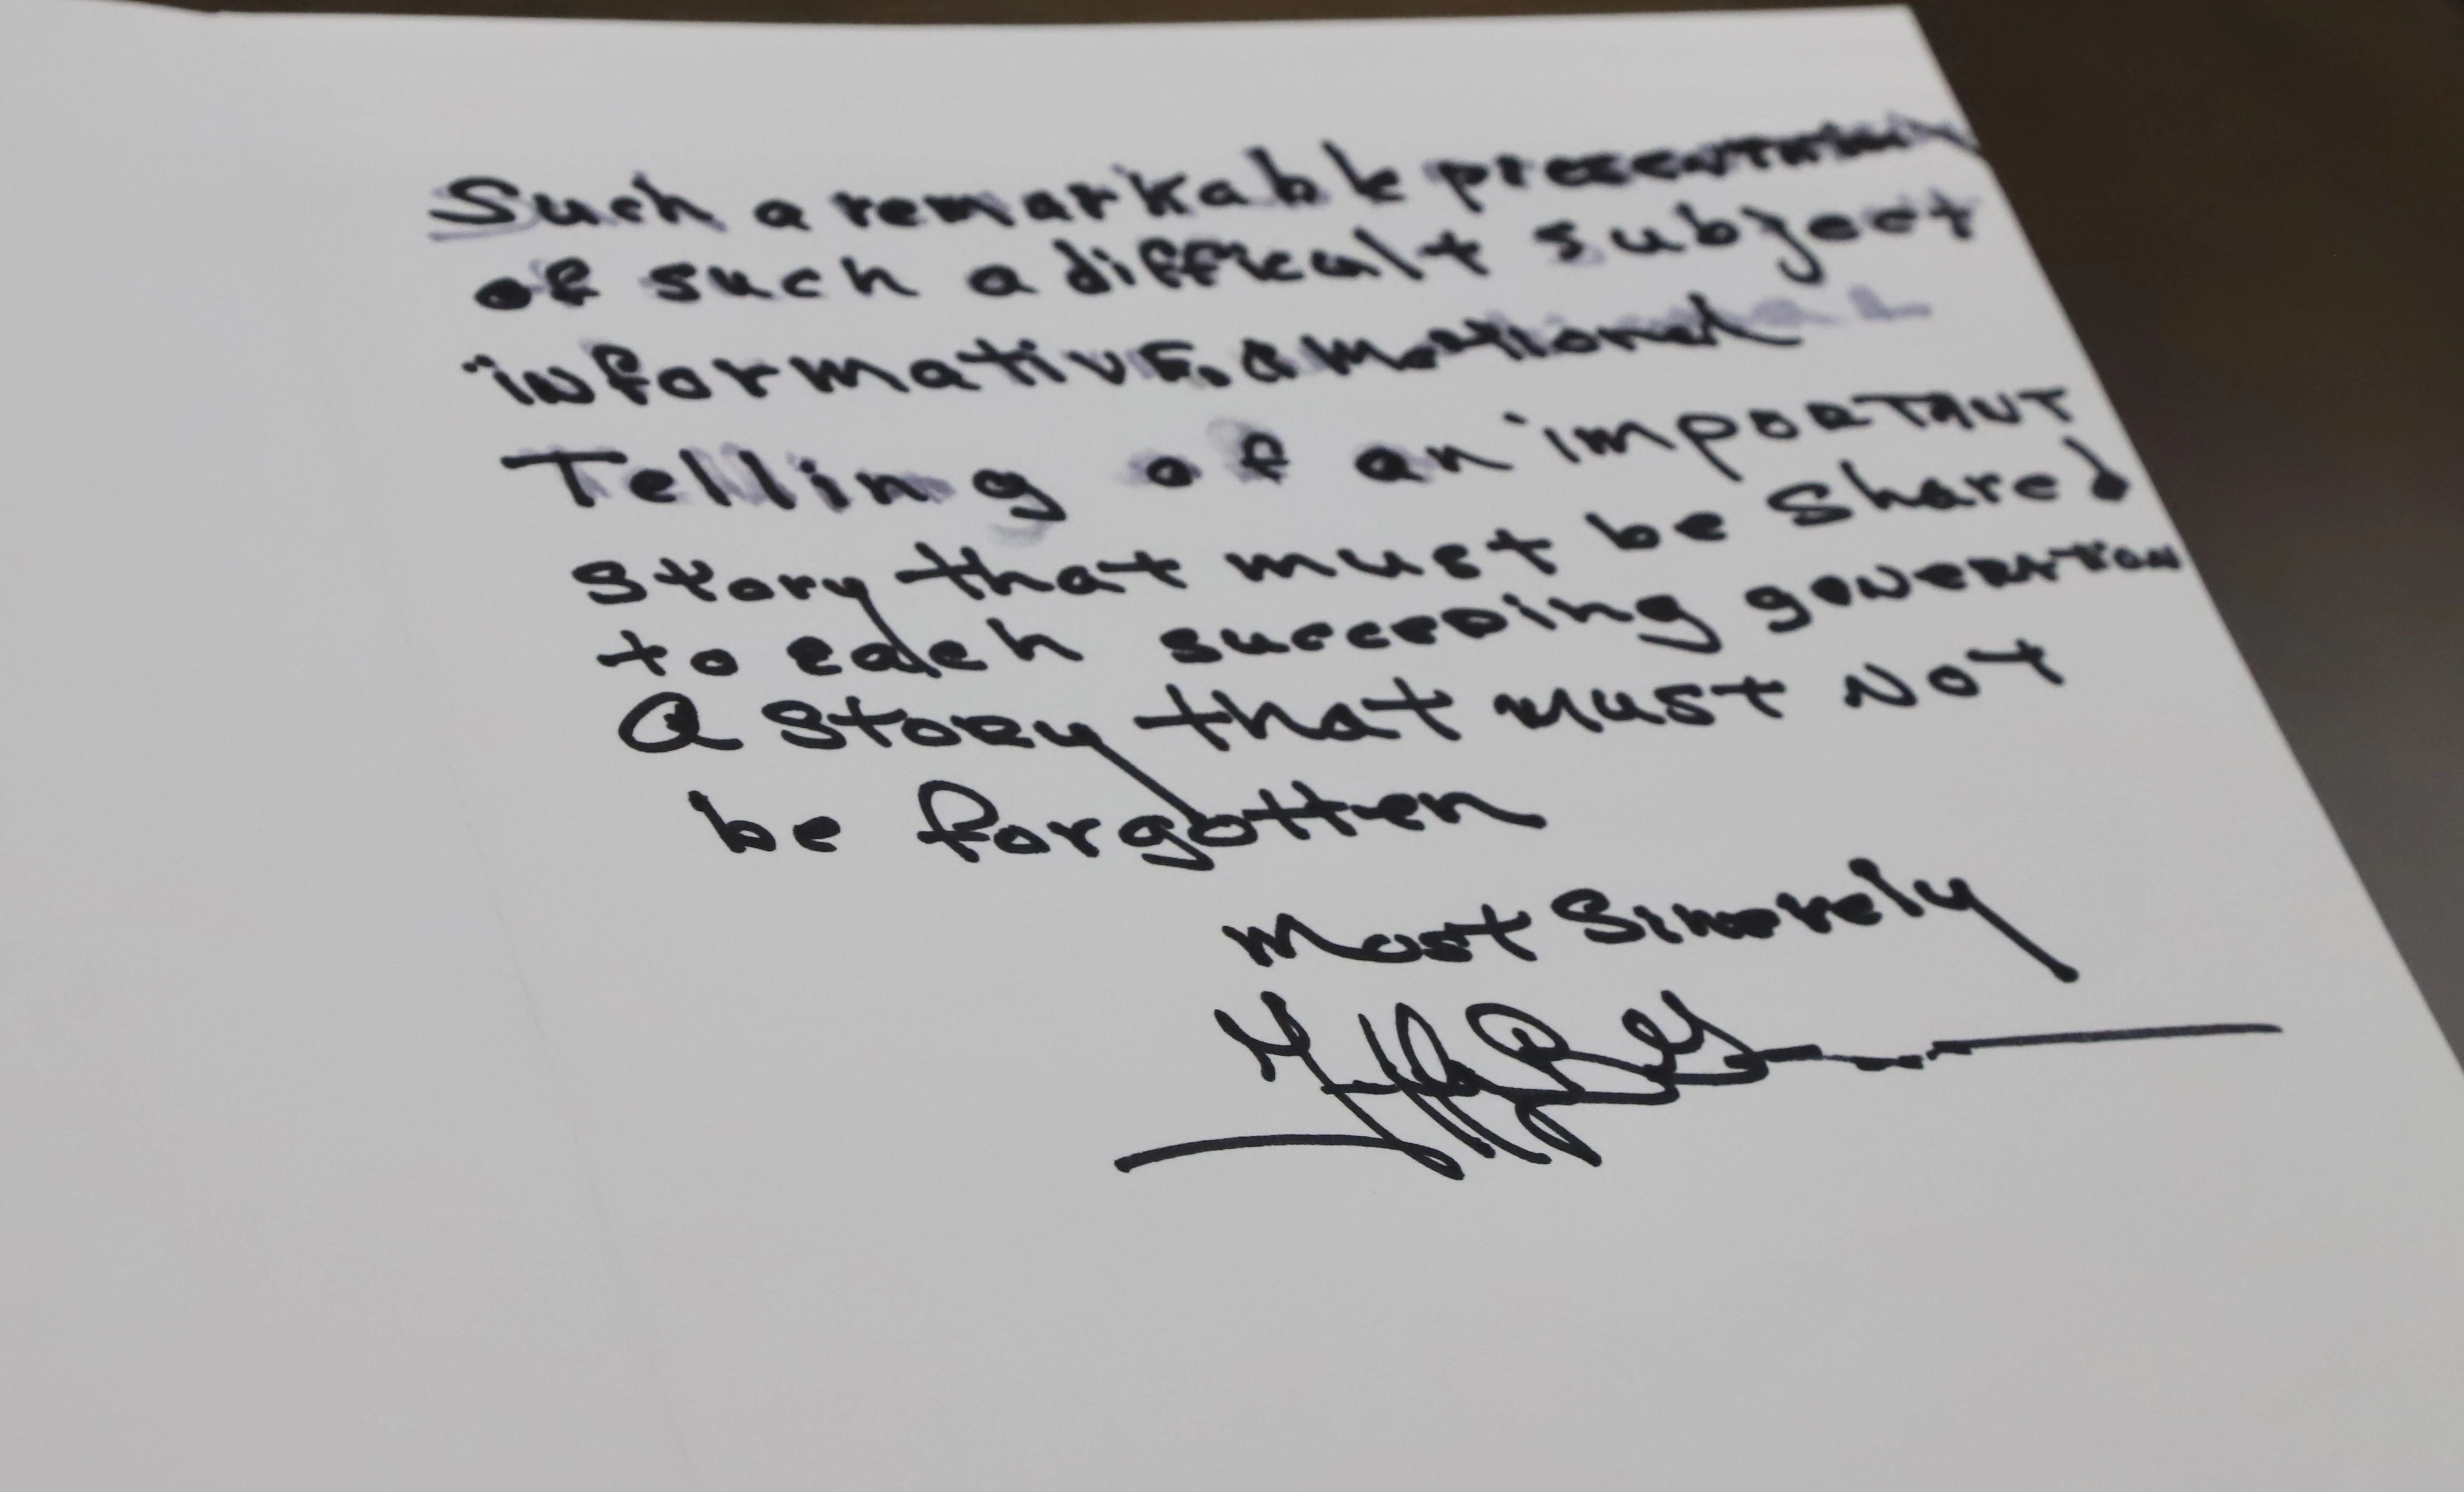 Such a remarkable presentation
of such a difficult subject
informative, emotional
Telling of an important
story that must be shared
to each succeeding generation
a story that must not
be forgotten
Most Sincerely